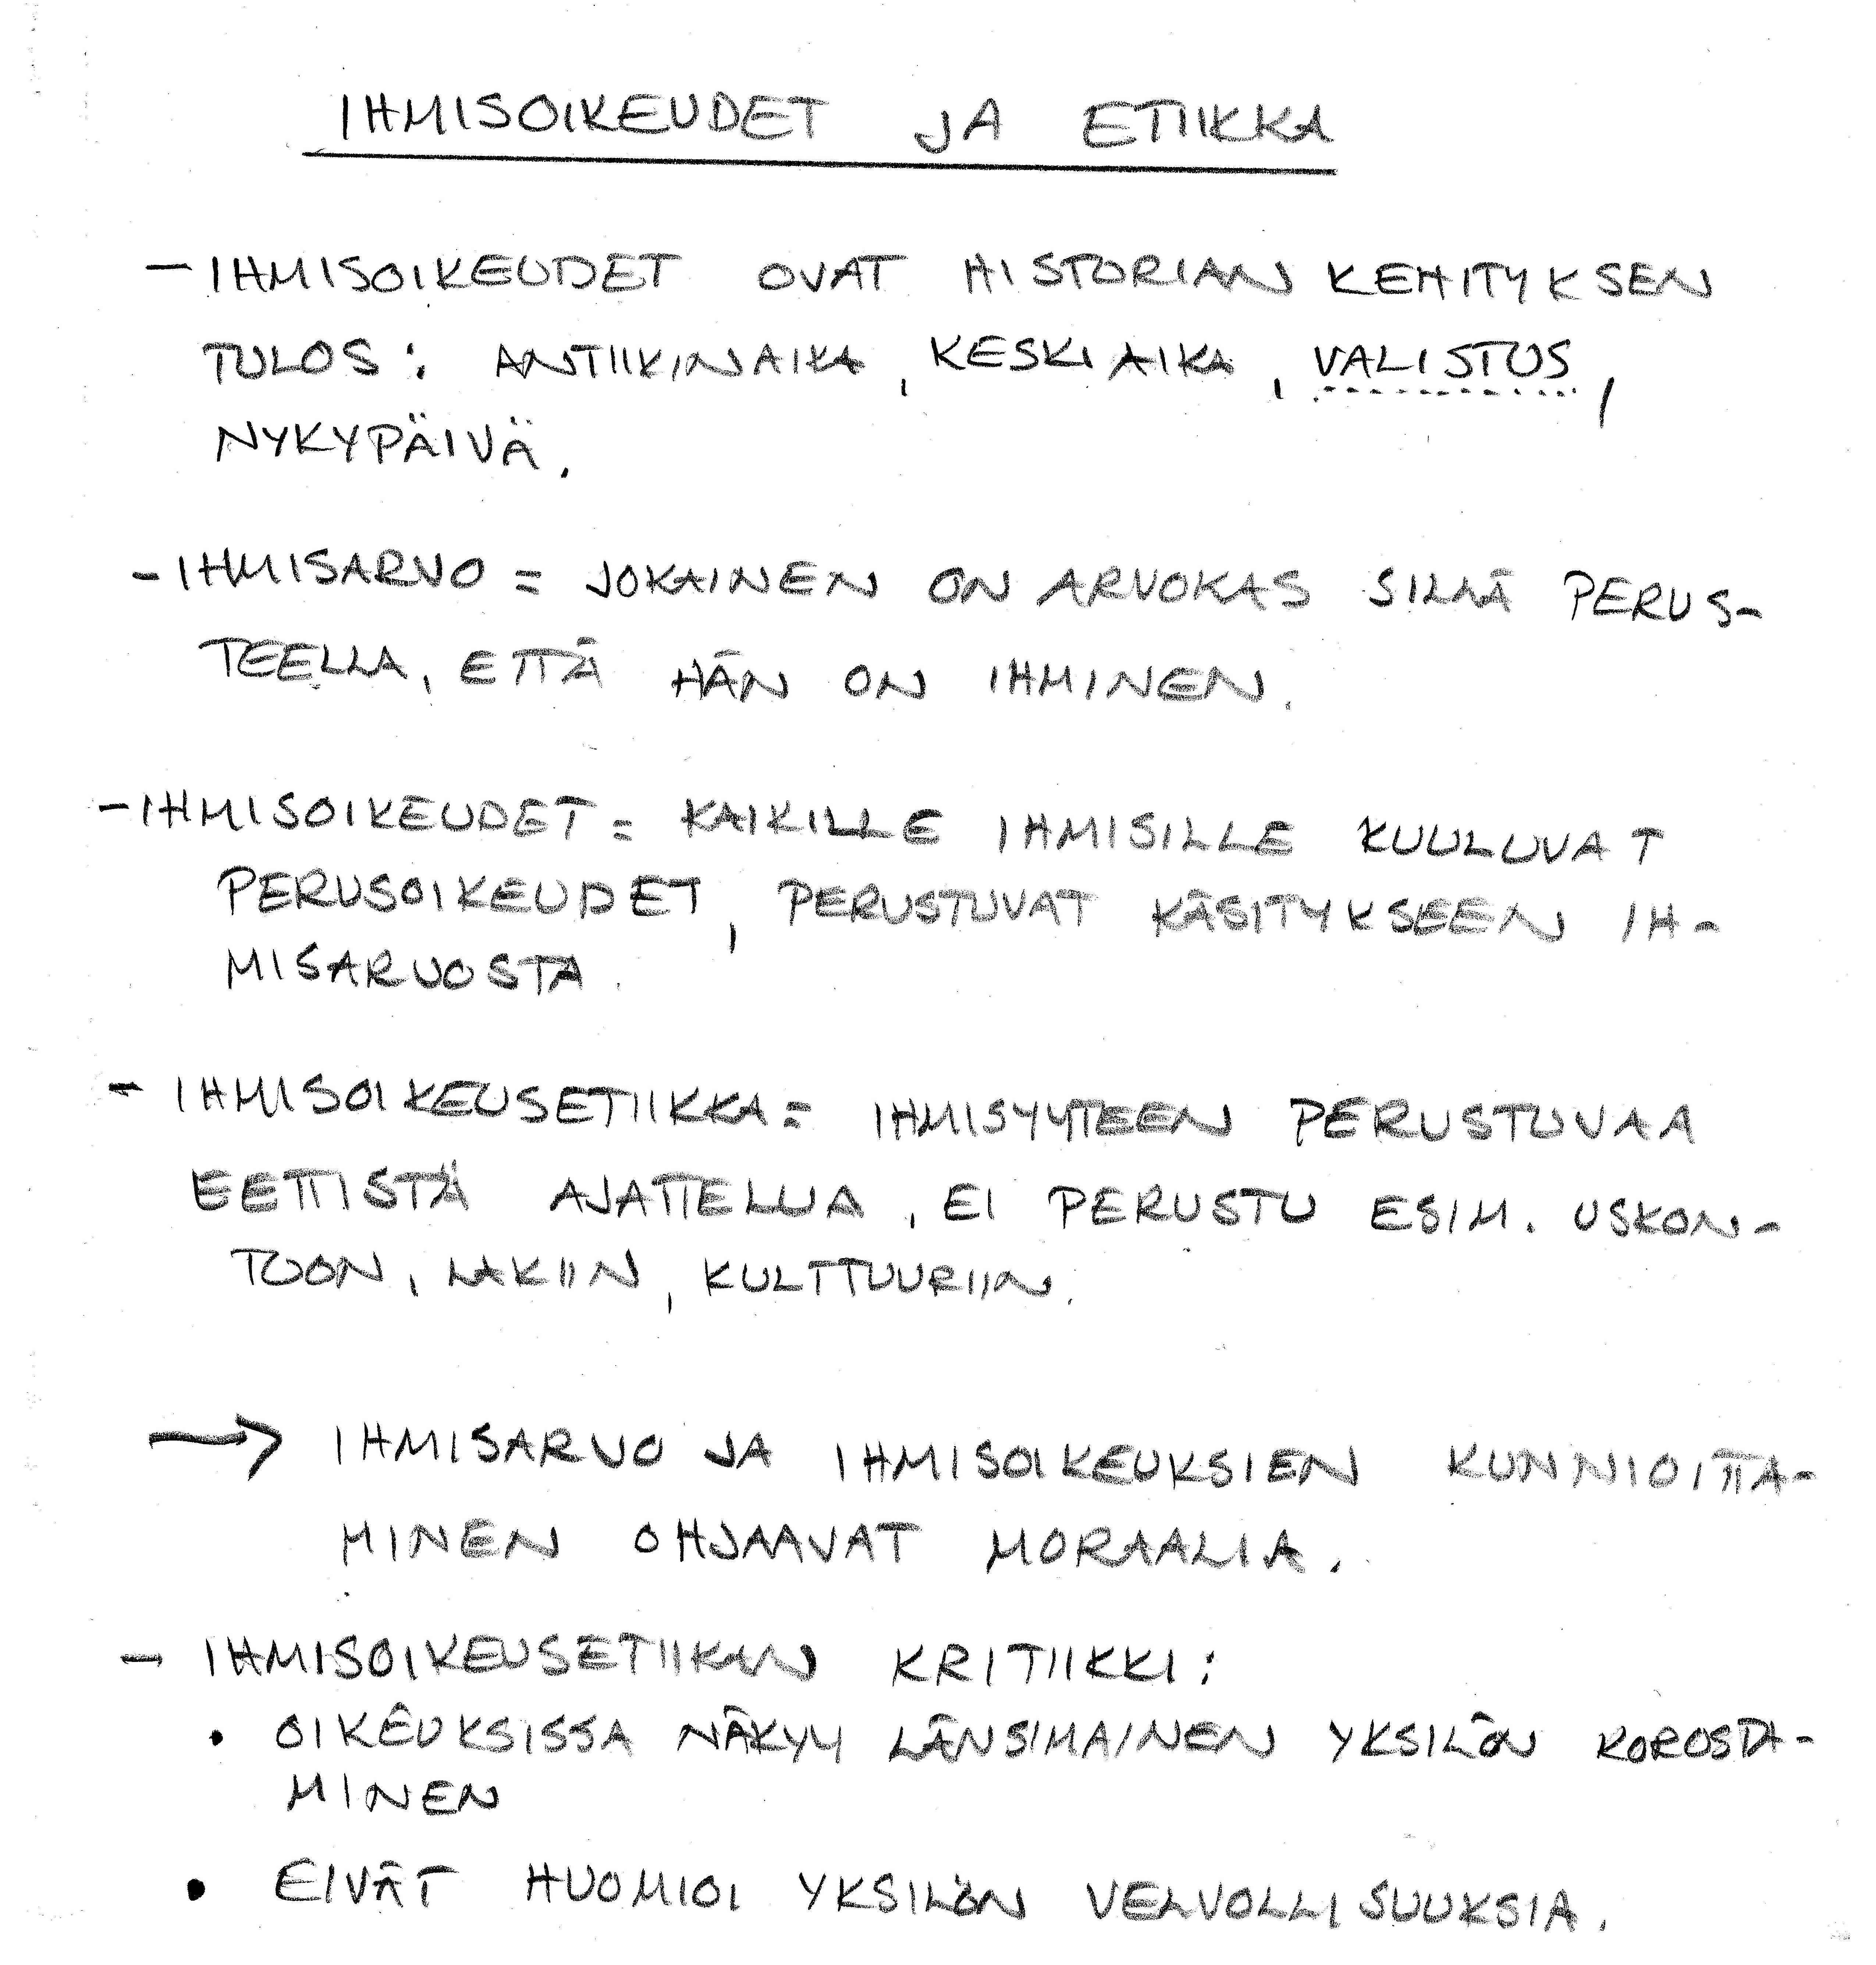 IHMISOIKEUDET JA ETIIKKA
- IHMISOIKEUDET OVAT HISTORIAN KEHITYKSEN
TULOS: ANTIIKINAIKA, KESKIAIKA, VALISTUS,
NYKYPÄIVÄ.
- IHMISARVO = JOKAINEN ON ARVOKAS SILLÄ PERUS-
TEELLA, ETTÄ HÄN ON IHMINEN.
- IHMISOIKEUDET = KAIKILLE IHMISILLE KUULUVAT
PERUSOIKEUDET, PERUSTUVAT KÄSITYKSEEN IH-
MISARVOSTA.
- IHMISOIKEUSETIIKKA = IHMISYYTEEN PERUSTUVAA
EETTISTÄ AJATTELUA, EI PERUSTU ESIM. USKON-
TOON, LAKIIN, KULTTUURIIN.
→ IHMISARVO JA IHMISOIKEUKSIEN KUNNIOITTA-
MINEN OHJAAVAT MORAALIA.
- IHMISOIKEUSETIIKAN KRITIIKKI:
• OIKEUKSISSA NÄKYY LÄNSIMAINEN YKSILÖN KOROSTA-
MINEN
• EIVÄT HUOMIOI YKSILÖN VELVOLLISUUKSIA.